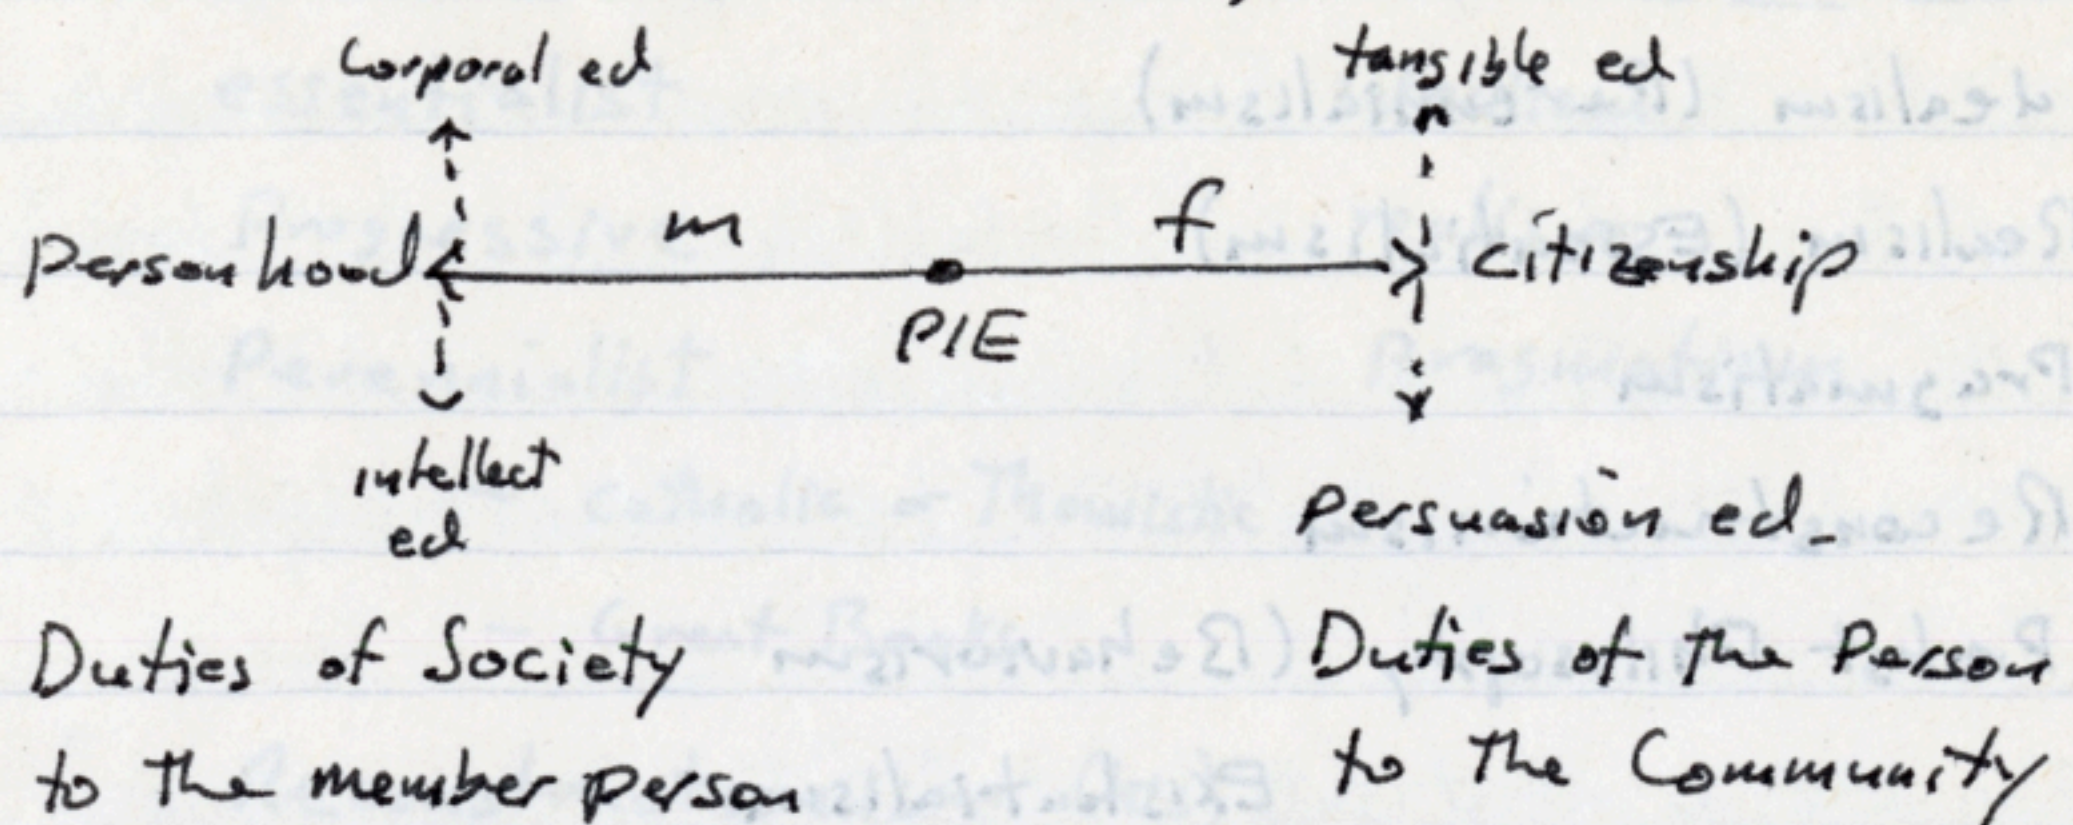 Corporal ed
tangible ed
m
f
Personhood
Citizenship
PIE
intellect
ed
Persuasion ed.
Duties of Society
to the member person
Duties of the Person
to the Community